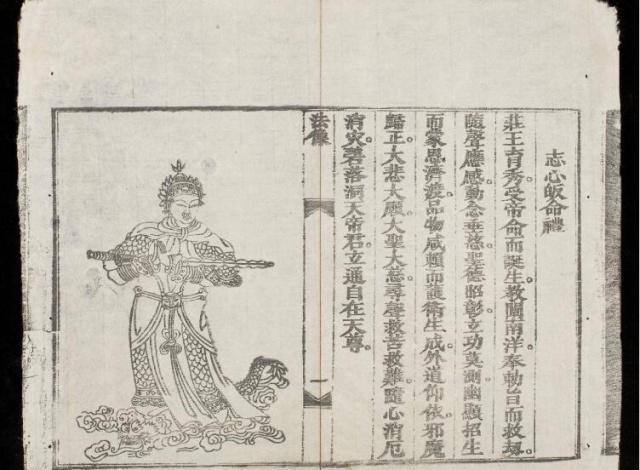 志心皈命禮
莊王育秀。受帝命而誕生。教闡南洋。奉勅旨而救刼。
隨聲應感。動念垂慈。聖德昭彰。立功莫測。幽顯招生
而蒙恩濟渡。品物咸賴而護衛生成。外道仰依。邪魔
歸正。大悲大願。大聖大慈。尋聲救苦救難。隨心消厄
消灾。碧落洞天帝君。立通自在天尊。
法像
一